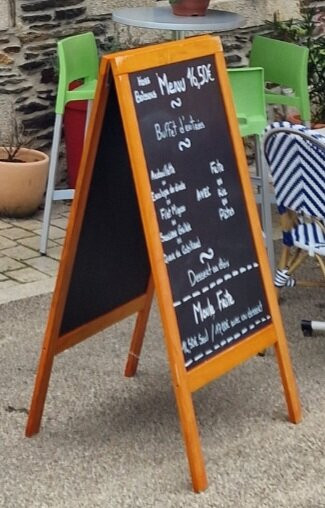 Nous
Proposons
Menu 16,50€
~
Buffet d'entrées
~
Andouillette
ou
Escalope de dinde
ou
Filet Mignon
ou
Saucisse Grillée
ou
Queue de Cabillaud
AVEC
Frite
ou
Riz
ou
Pâtes
~
Dessert au choix
Moule Frite
avec un dessert